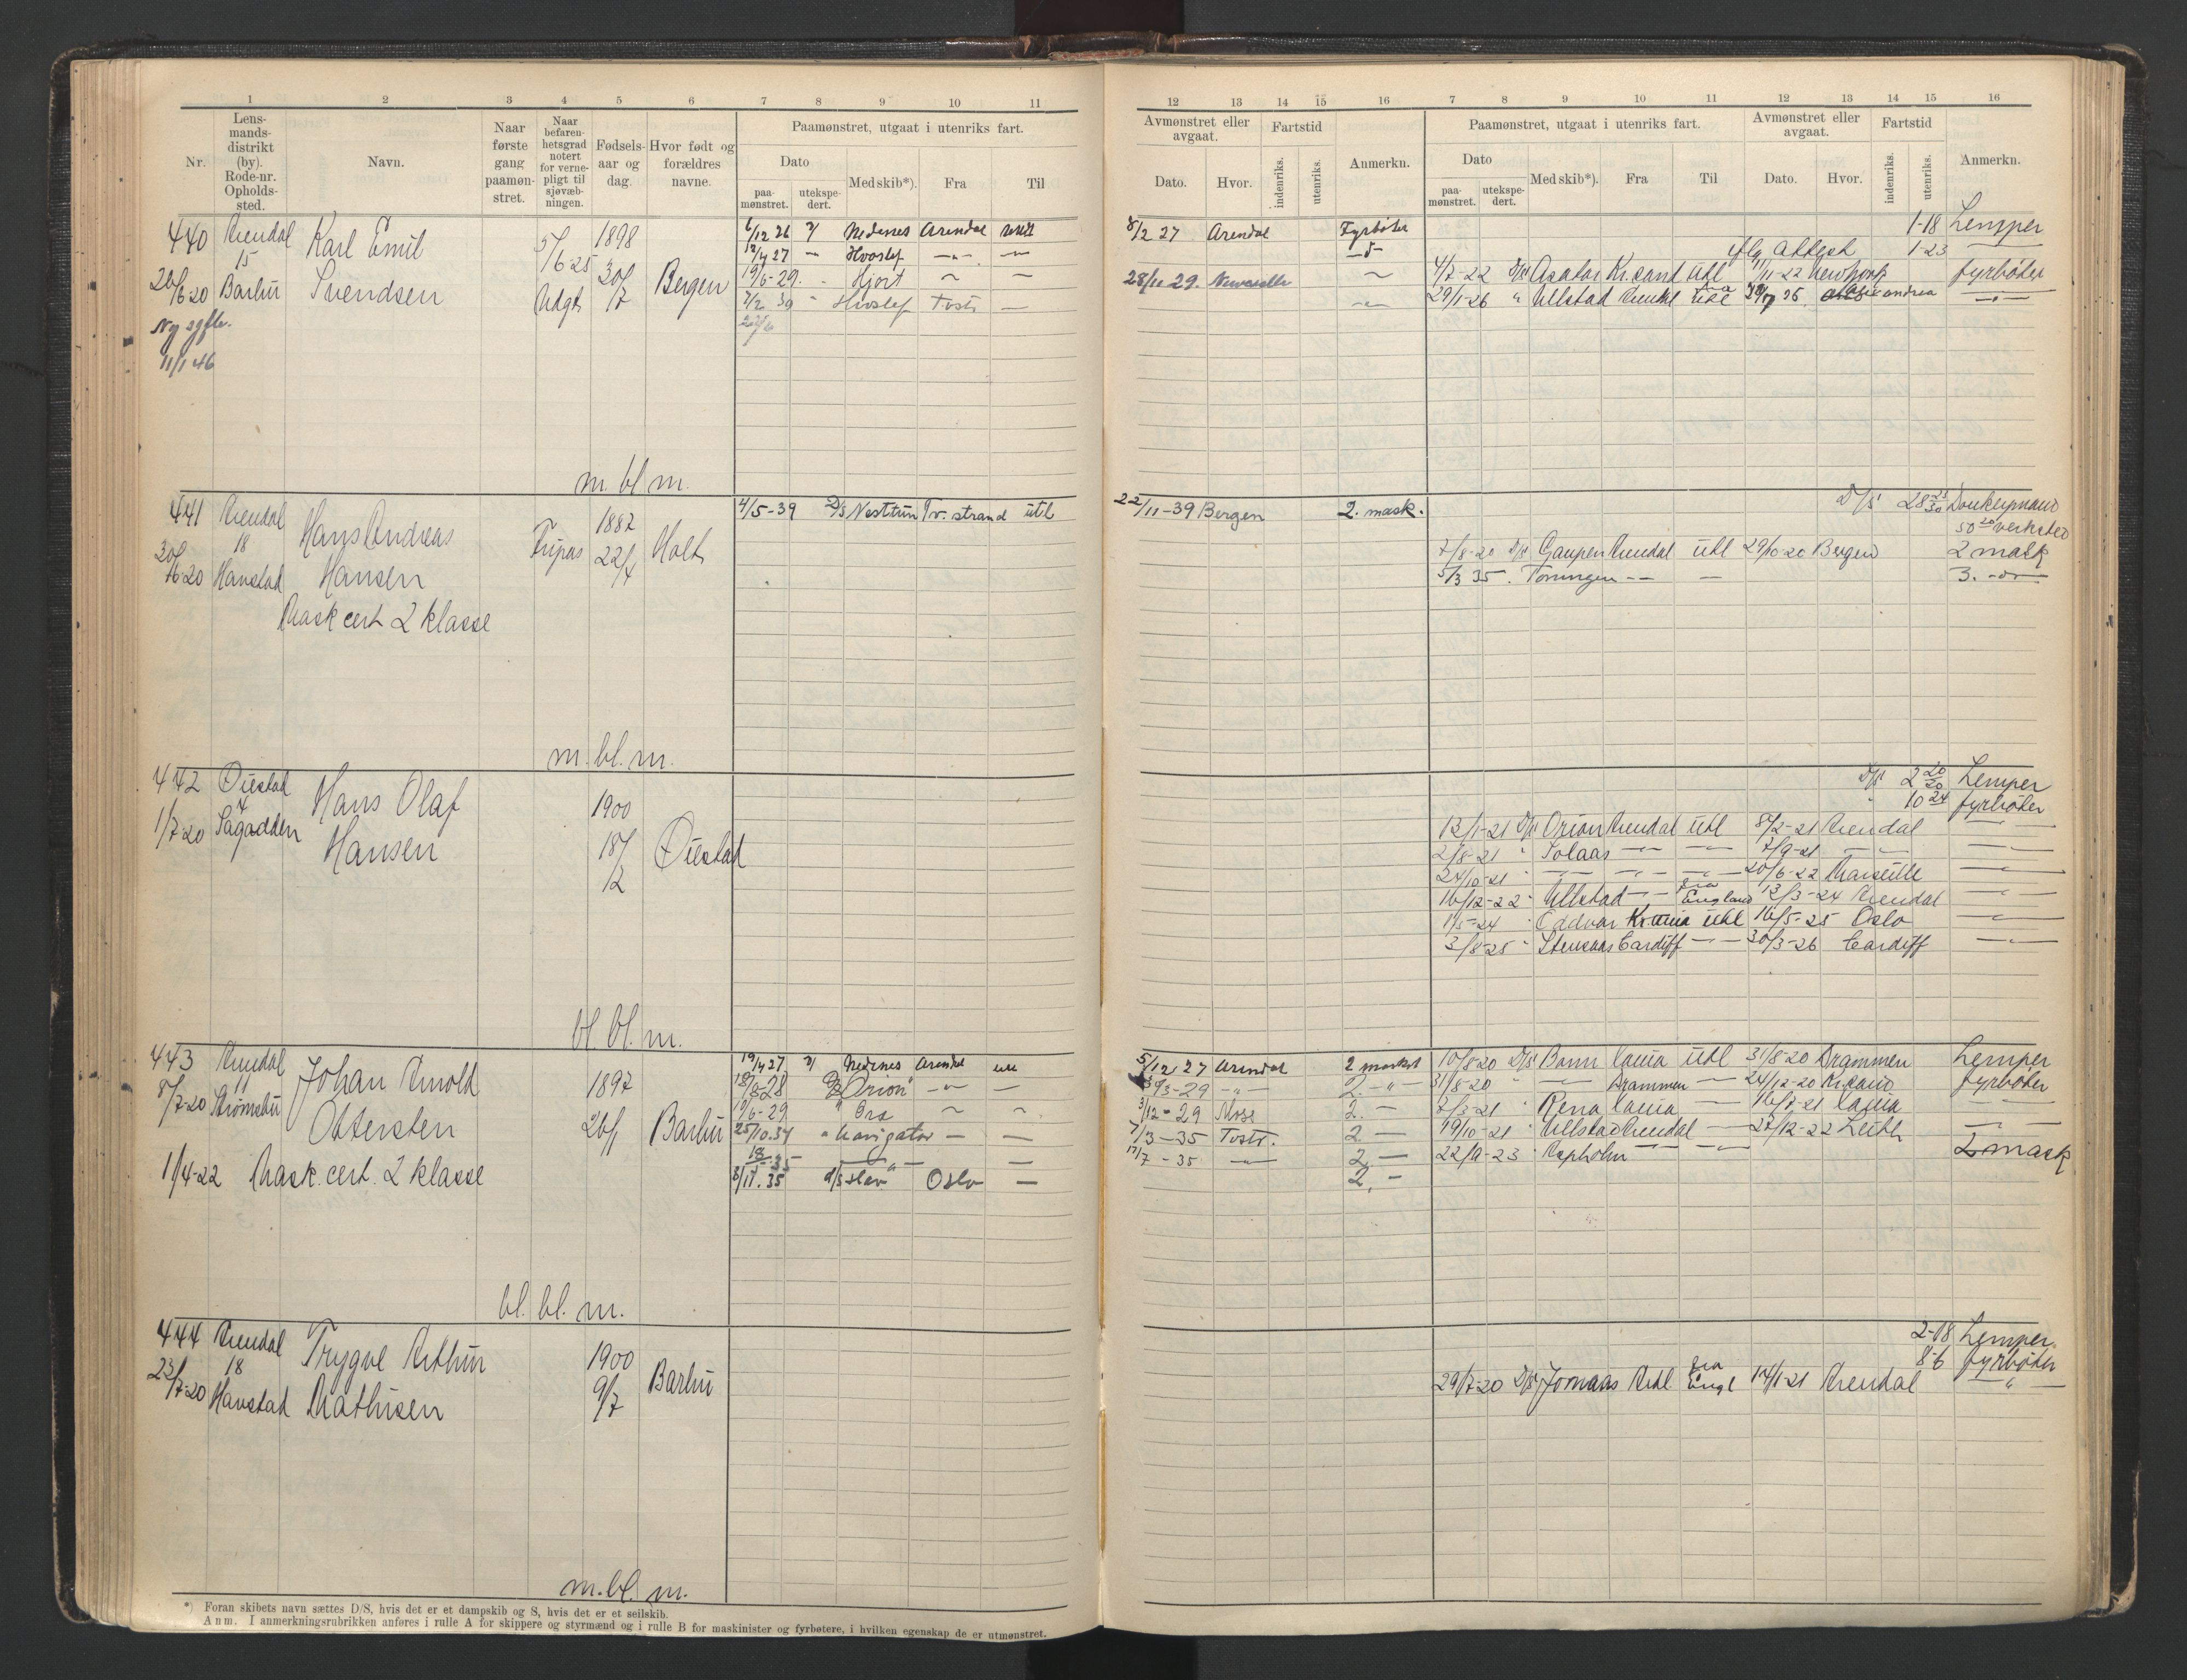 1 2 3 4 5 6 7 8 9 10 11
Nr.
Lens-
mands-
distrikt
(by).
Rode-nr.
Opholds-
sted.
Navn.
Naar
første
gang
paamøn-
stret.
Naar
befaren-
hetsgrad
notert
for verne-
pligt til
sjøvæb-
ningen.
Fødsels-
aar og
dag.
Hvor født og
forældres
navne.
Paamønstret, utgaat i utenriks fart.
Dato
paa-
mønstret.
utekspe-
dert.
Med skib*).
Fra
Til
440 Arendal Karl Emil 5/6-25 1898 6/12 26 Nedenes Arendal
15 12/4 27 Hvoslef
28/6-20 Barbu Svendsen Udgt 30/7 Bergen 19/6-29. Hjort
7/2 39 Hvoslef Tvestr
Ny sgfb.
11/1 46
m. bl m.
441 Arendal Hans Andreas Fripas 1882 4/5-39 D/S Nesttun Tv. strand utl
18
30/6-20 Havstad Hansen 22/4 Holt
Mask cert 2 klasse
m. bl. m.
442 Øiestad Hans Olaf 1900
4
1/7-20 Sagodden Hansen 18/12 Øiestad
bl bl. m.
443 Arendal Johan Arnold 1897 19/4 27 Nedenes Arendal utl
11 18/8-28 D/S Orion
8/7-20 Strømsbu Ottersten 26/1 Barbu 19/6-29 Bra
25/10.34 Navigator
18/5 35
1/4-22 Mask. cert. 2 klasse 8/11.35 d/s Oslo
bl. bl. m.
444 Arendal Trygve Arthur 1900
18
23/7-20 Havstad Mathisen 9/7 Barbu
m. bl. m.
*) Foran skibets navn sættes D/S, hvis det er et dampskib og S, hvis det er et seilskib.
Anm. I anmerkningsrubrikken anføres i rulle A for skippere og styrmænd og i rulle B for maskinister og fyrbøtere, i hvilken egenskap de er utmønstret.
12 13 14 15 16 7 8 9 10 11 12 13 14 15 16
Avmønstret eller
avgaat.
Dato.
Hvor.
Fartstid
indenriks.
utenriks.
Anmerkn.
Paamønstret, utgaat i utenriks fart.
Dato
paa-
mønstret.
utekspe-
dert.
Med skib*).
Fra
Til
Avmønstret eller
avgaat.
Dato.
Hvor.
Fartstid
indenriks.
utenriks.
Anmerkn.
8/2 27 Arendal Fyrbøter 1-18 Lemper
iflg attest 1-23
28/11 29. Newcastle 4/7-22 D/S Asator Kr.sand utl 11/11-22 Newport fyrbøter
29/1-26 " Ullstad Arendal
22/11-39 Bergen 2. mask. D/S 28 Donkeymand
verksted
7/8-20 D/S Gaupen Arendal utl 29/10-20 Bergen 2 mask
5/3 35. Torungen 3.
D/S 2 20/20 Lemper
10 24 fyrbøter
12/1-21 D/S Orion Arendal utl 8/2-21 Arendal
2/8-21 " Solaas 7/9-21
24/10-21 20/6-22 Marseille
16/12-22 " Ullstad fra England 12/3-24 Arendal
1/5-24 " Oddvar Kr.ania utl 16/5-25 Oslo
3/8-25 " Stensaas Cardiff 30/3-26 Cardiff
5/12 27 Arendal 2 maskst 10/8-20 D/S Bonn Lania utl 31/8-20 Drammen Lemper
3/3-29 2. 31/8-20 Drammen 24/12-20 Kr.sand fyrbøter
3/12-29 Moss 2. 7/3-21 " Rena Lania 16/7-21 Lania
7/3-35 Tvestr. 2 19/10-21 " Ullstad Arendal 27/12-22 Leith
17/7-35 2. 22/9-23 " Aspholm 2 mask
2.
2-18 Lemper
8-6 fyrbøter
29/7-20 D/S Jomaas Ardl. fra Engl 14/1-21 Arendal "